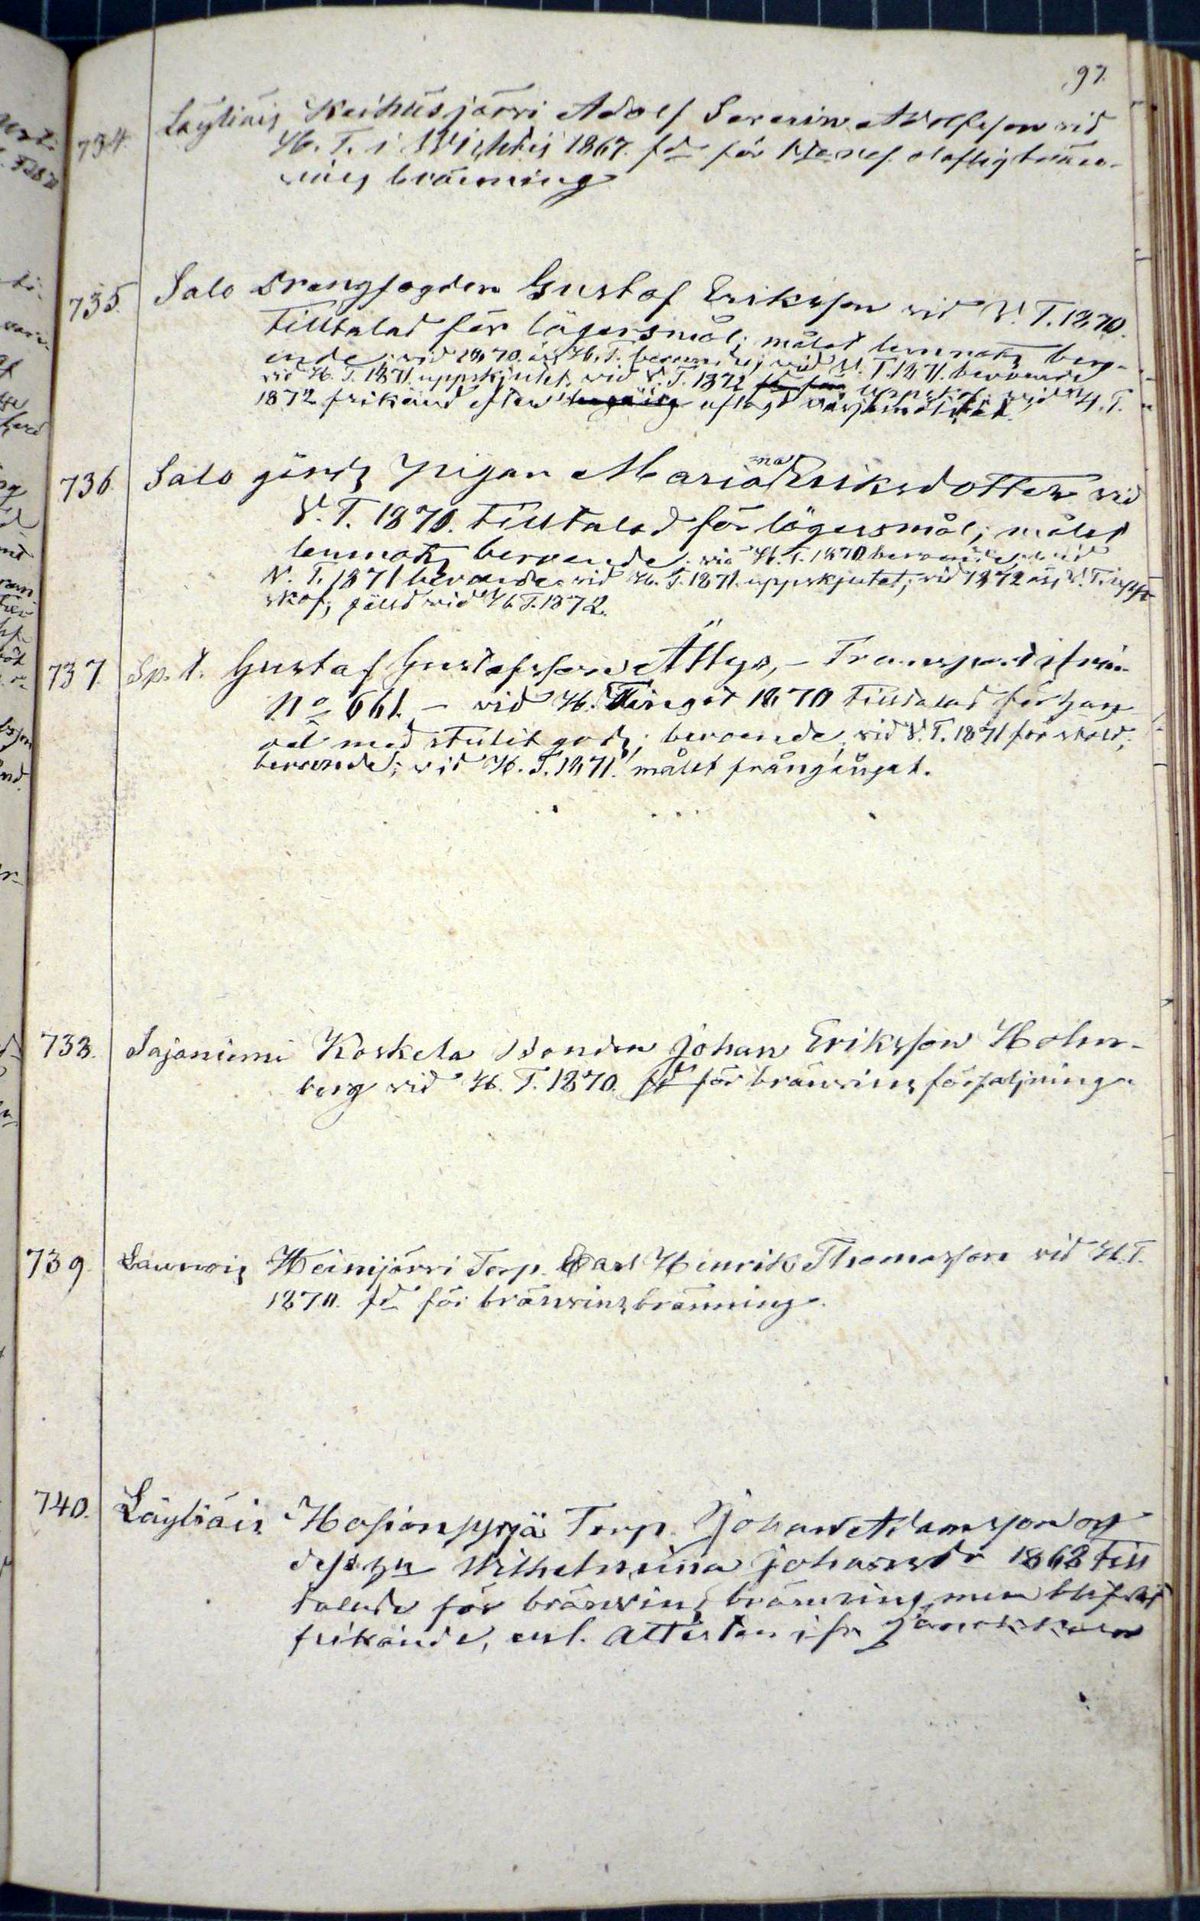 97.
734. Läyliäis Keihäsjärvi Adolf Severin Adolfsson vid
H. T. i Wichtis 1867. fd för 1sta res. olaflig bränn-
vins bränning
735. Salo Drängfogden Gustaf Eriksson vid V. T. 1870.
tilltalad för lägersmål; målet lemnats bero-
ende; vid 1870 års H. T. beroende; vid V. T. 1871 beroende
vid H. T. 1871 uppskjutet, vid V. T. 1872 uppskof; vid H. T.
1872 frikänd efter aflagd värjemålsed.
736. Salo gårds pigan Maria Eriksdotter vid
V. T. 1870. tilltalad för lägersmål; målet
lemnats beroende. vid H. T. 1870 beroende; vid
V. T. 1871 beroende vid H. T. 1871 uppskjutet; vid 1872 års V. T. upp-
skof; fälld vid H. T. 1872.
737. Sp. t. Gustaf Gustafsson Ällys, – Transport ifrån
No 661. – vid H. Tinget 1870 tilltalad för
med stulit gods; beroende, vid V. T. 1871 för stöld;
beroende; vid H. T. 1871. målet frångånget.
738. Sajaniemi Koskela Bonden Johan Eriksson Holm-
berg vid H. T. 1870. fd för bränvins försäljning.
739. Launois Heinijärvi Torp. Carl Henrik Thomasson vid H. T.
1870. fd för bränvinsbränning.
740. Läyliäis Hosionpyyjä Torp. Johan Adamsson og
dess hu Wilhelmina Johansdr 1868 till
talade för bränvins bränning men blefvo
frikände, enl. attesten ifr Janakkala